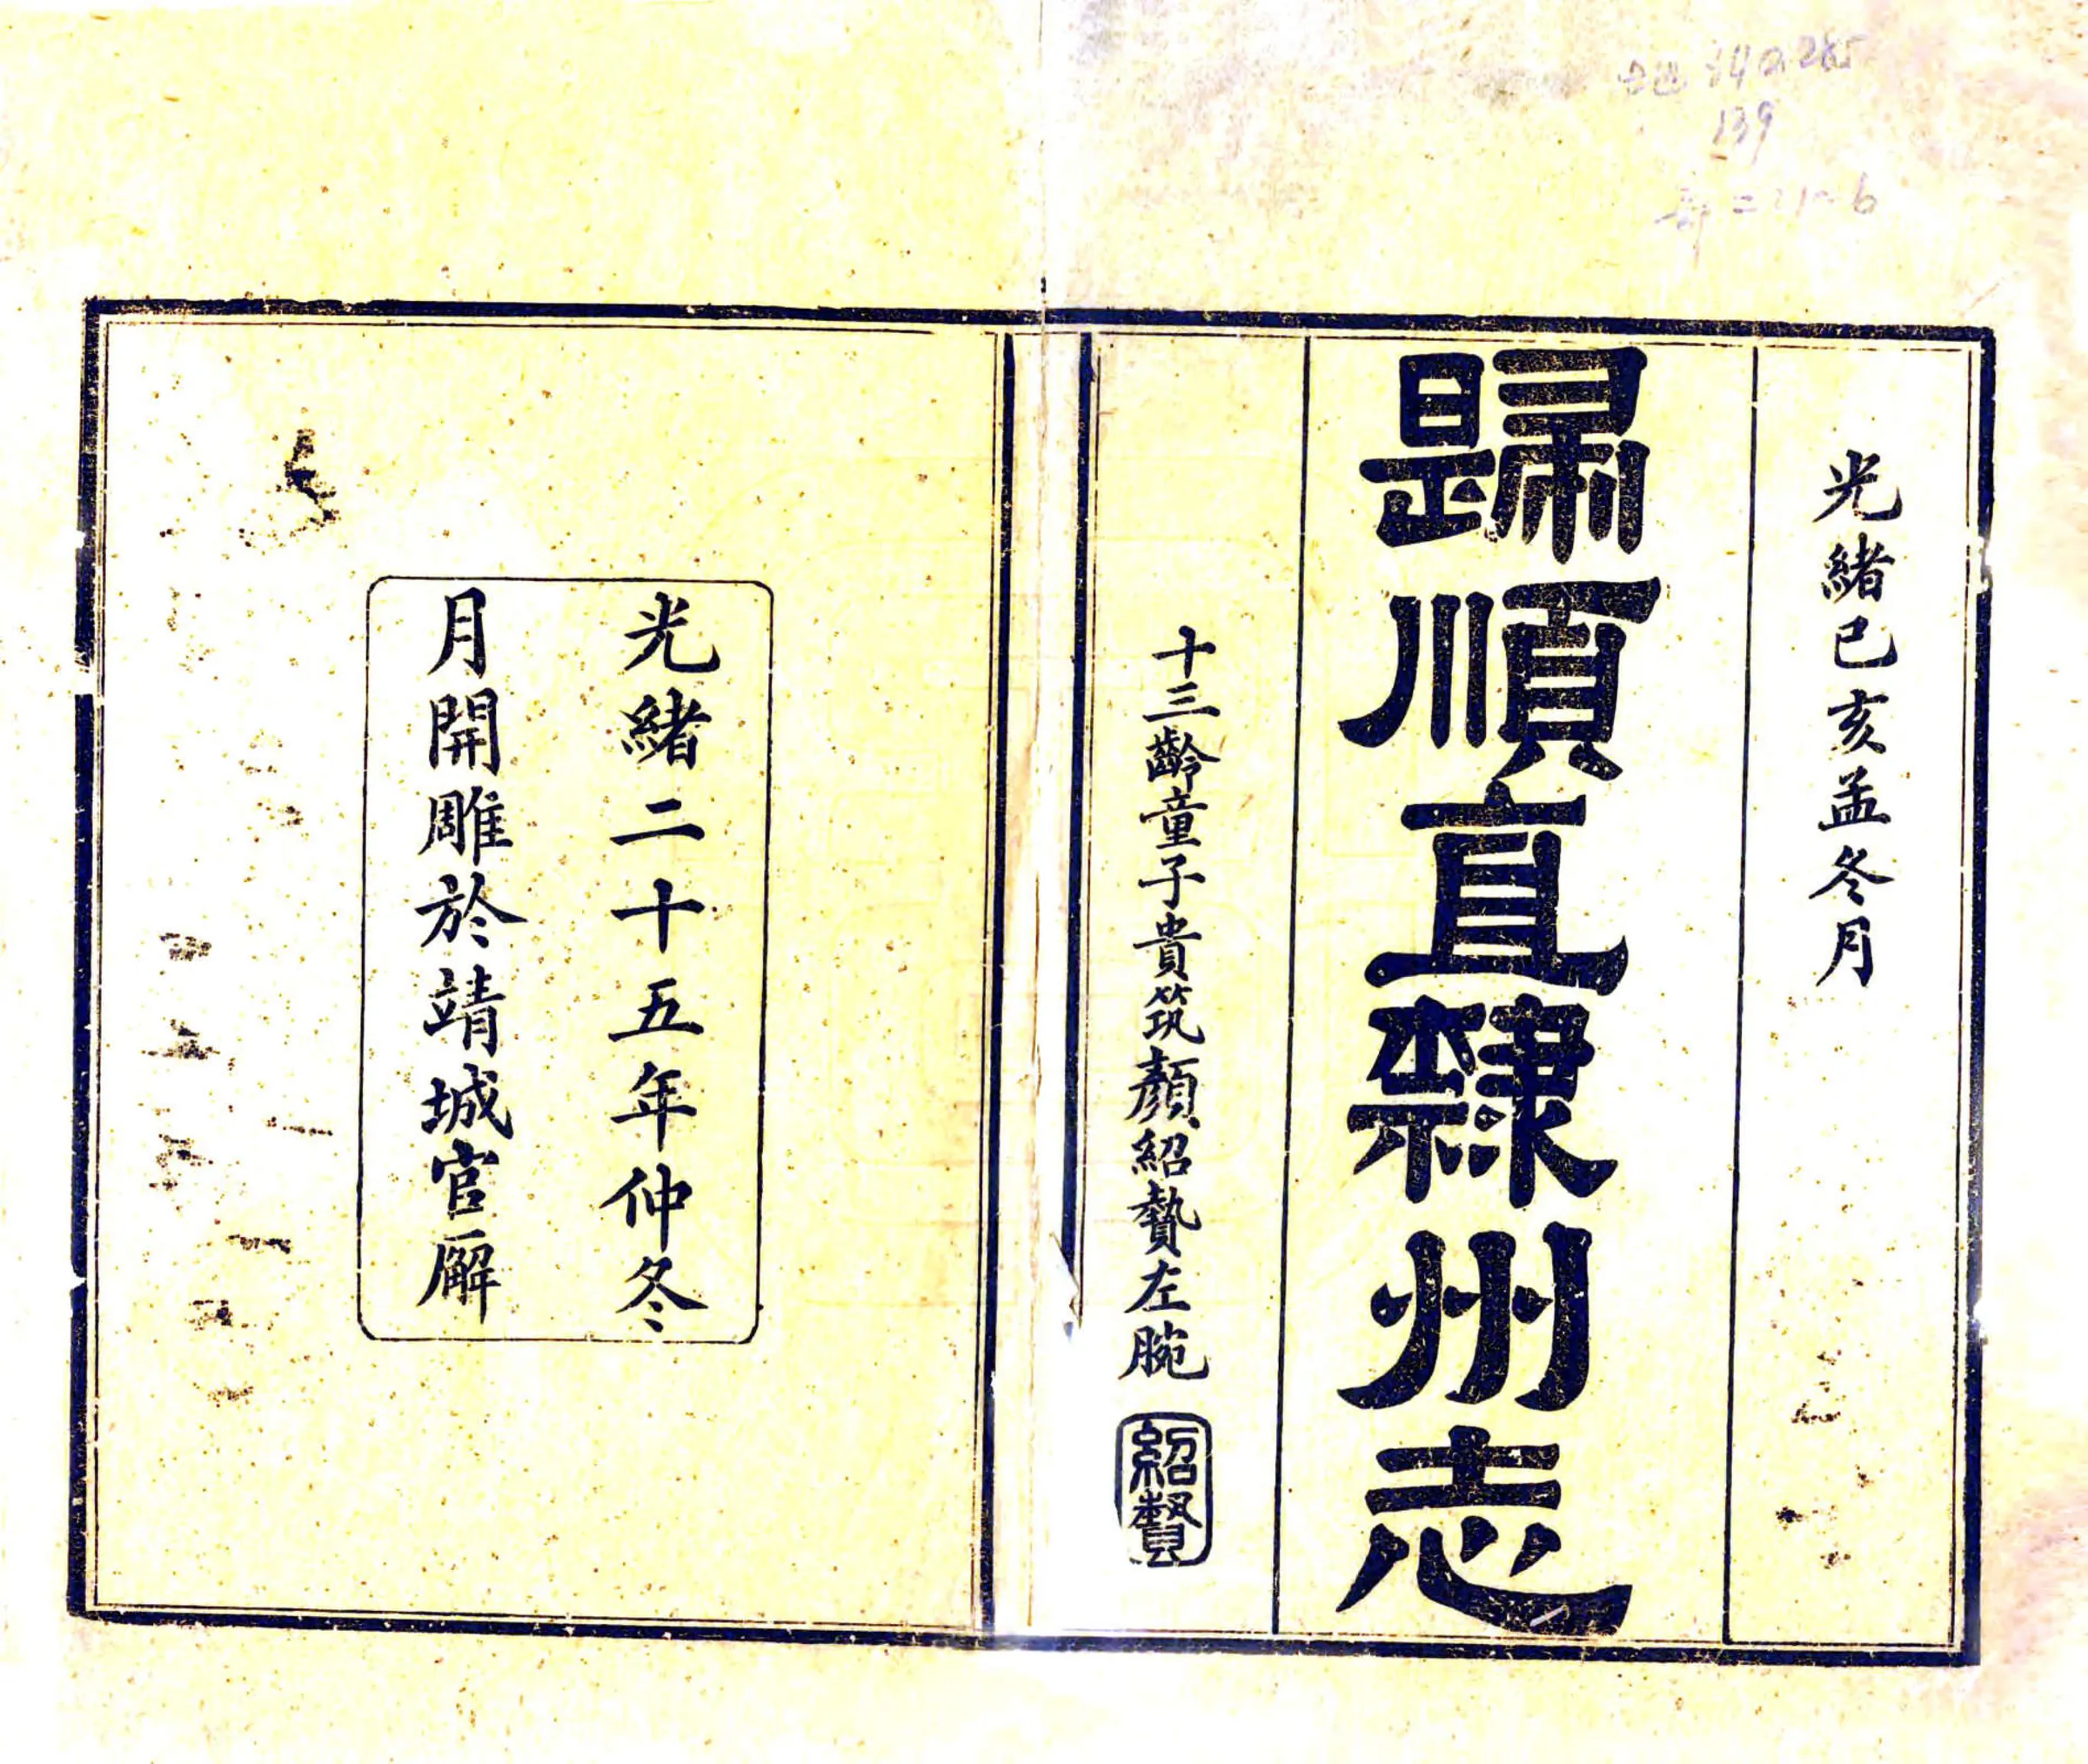 光緒己亥孟冬月
歸順直隸州志
十三齡童子貴筑顏紹贄左腕
紹贄
光緒二十五年仲冬
月開雕於靖城官廨
139